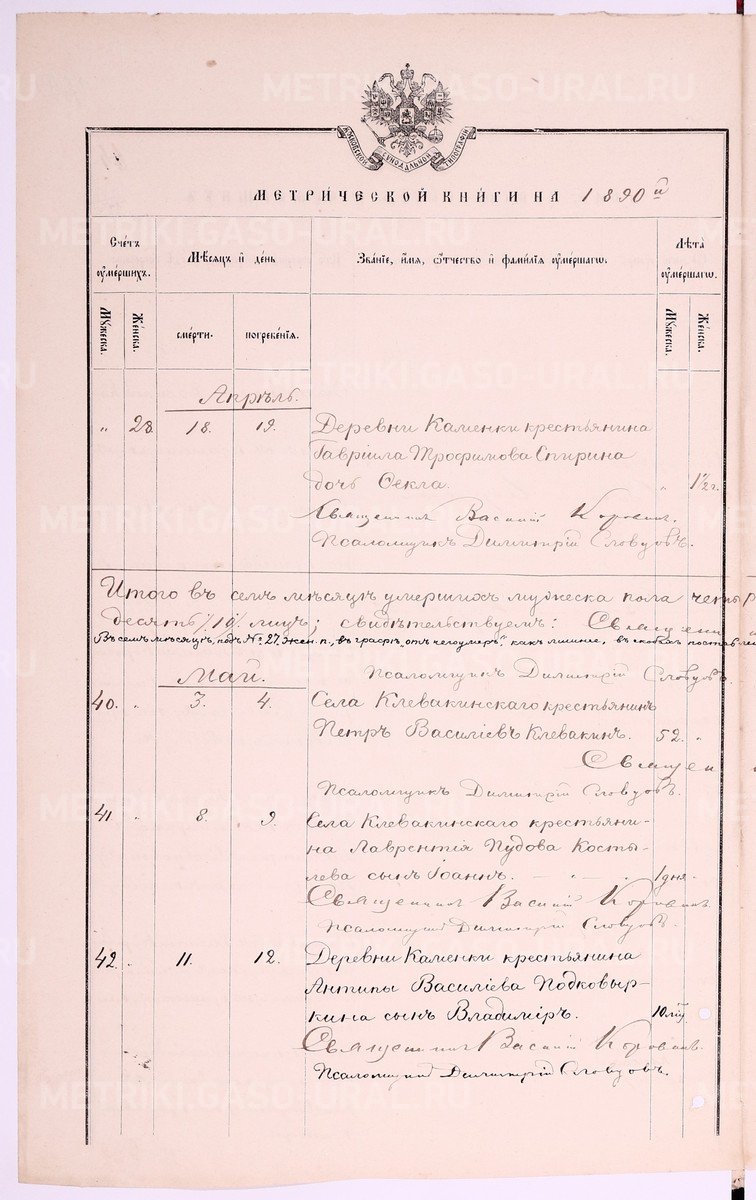 METRIKI.GASO-URAL.RU
МОСКОВСКОЙ СѴНОДАЛЬНОЙ ТИПОГРАФІИ
МЕТРИ́ЧЕСКОЙ КНИ́ГИ НА 1890й
Сче́тъ ᲂу҆ме́ршихъ.
Мѣ́сяцъ и҆ де́нь
Зва́ніе, и҆́мя, ѻ҆́тчество и҆ фами́лія ᲂу҆ме́ршагѡ.
Лѣ́та ᲂу҆ме́ршагѡ.
Мꙋ́жеска.
Же́нска.
сме́рти.
погребе́нія.
Мꙋ́жеска.
Же́нска.
Апрѣль.
„ 28. 18. 19. Деревни Каменки крестьянина
Гавріила Трофимова Спирина
дочь Ѳекла. „ 1½ г.
Священникъ Василій Коровинъ.
Псаломщикъ Димитрій Словцовъ.
Итого въ семъ мѣсяцѣ умершихъ мужеска пола четыр
десять /10/ лицъ; свидѣтельствуемъ: Священни
Въ семъ мѣсяцѣ, подъ № 27, жен. п., въ графѣ „отъ чего умеръ", какъ лишнее, въ скобкахъ поставле
Псаломщикъ Димитрій Словцовъ.
Май.
40. „ 3. 4. Села Клевакинскаго крестьянинъ
Петръ Василіевъ Клевакинъ. 52. „
Священ
Псаломщикъ Димитрій Словцовъ.
41 „ 8. 9. Села Клевакинскаго крестьяни-
на Лаврентія Пудова Косты-
лева сынъ Іоаннъ. — „ — „ 1 дня.
Священникъ Василій Коровинъ.
Псаломщикъ Димитрій Словцовъ.
42. „ 11. 12. Деревни Каменки крестьянина
Антипы Василіева Подковыр-
кина сынъ Владиміръ. 10 м.
Священникъ Василій Коровинъ.
Псаломщикъ Димитрій Словцовъ.